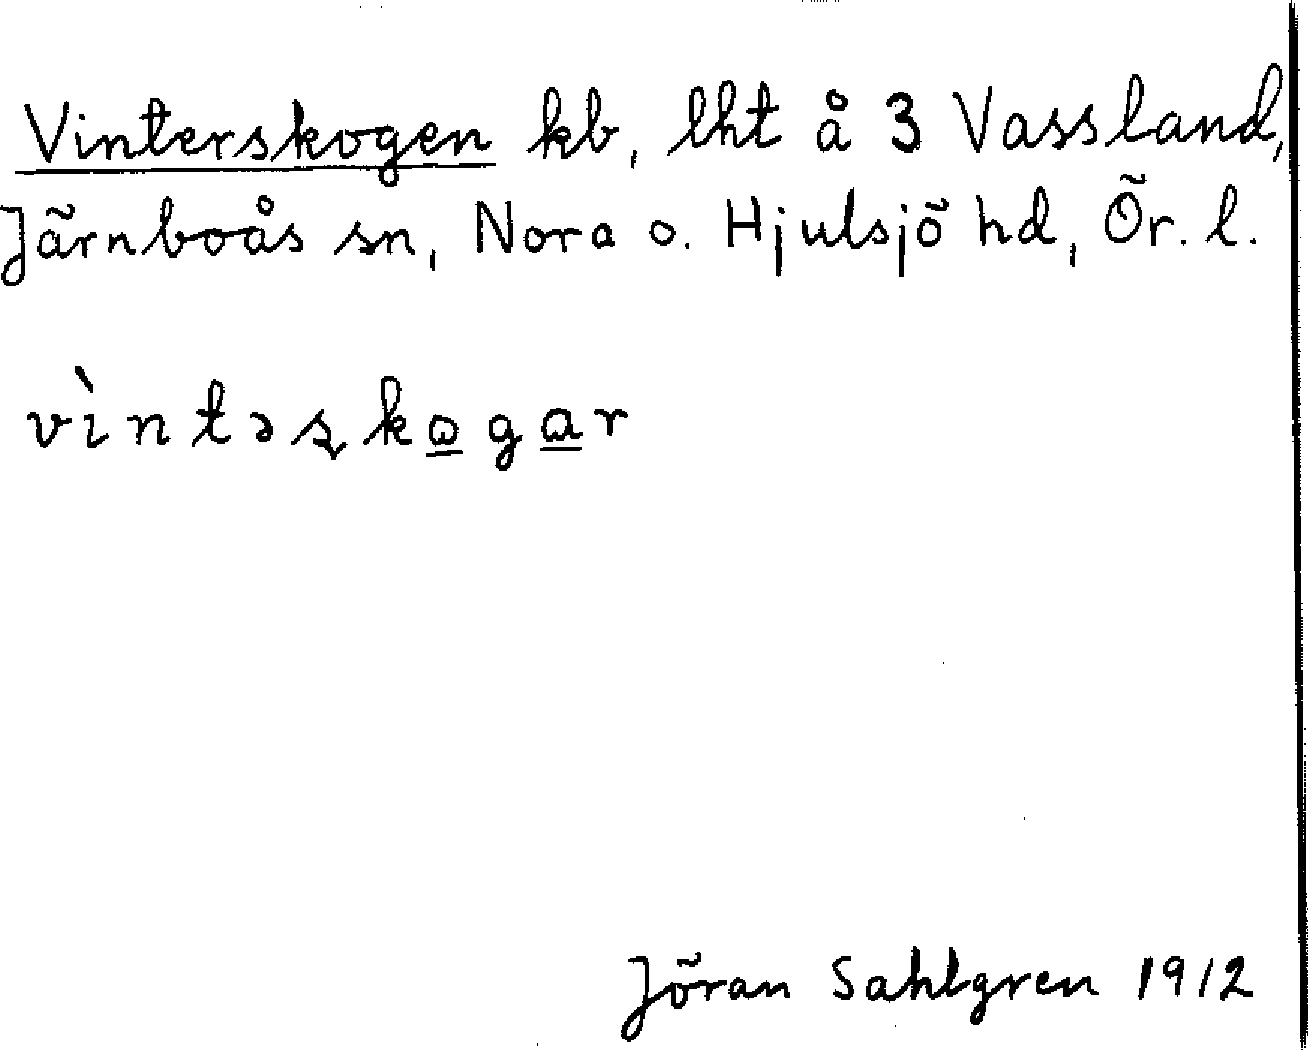 Vinterskogen kb, lht å 3 Vassland,
Järnboås sn, Nora o. Hjulsjö hd, Ör. l.
vìntəʂkogar
Jöran Sahlgren 1912